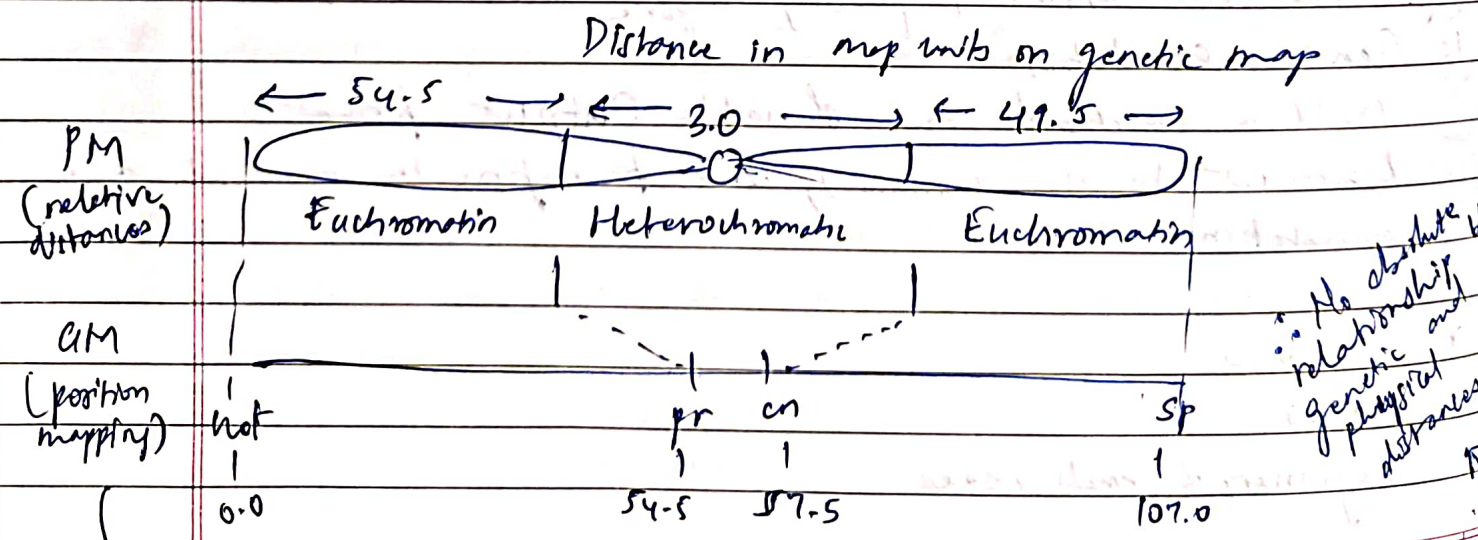 Distance in map units on genetic map
← 54.5 → ← 3.0 → ← 49.5 →
PM
(relative
distances)
Euchromatin Heterochromatic Euchromatin
GM
(position
mapping)
net pr cn sp
0.0 54.5 57.5 107.0
∴ No absolute
relationship
genetic and
physical
distances